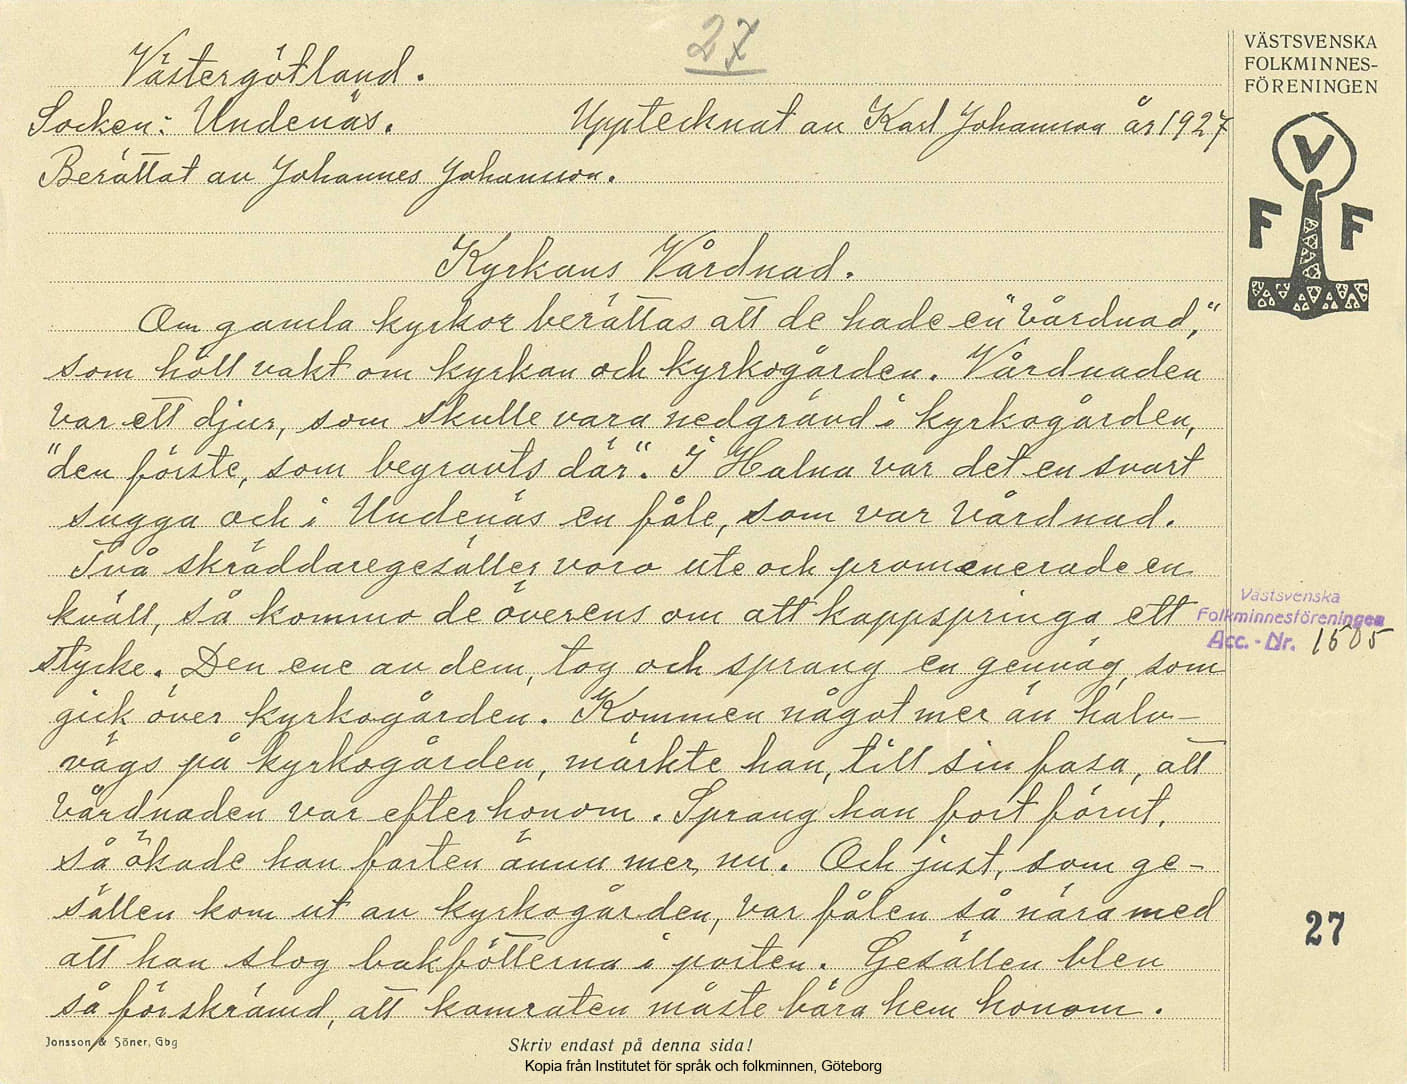 27
Västergötland.
Socken: Undenäs. Upptecknat av Karl Johansson år 1927
Berättat av Johannes Johansson.
Kyrkans Vårdnad.
Om gamla kyrkor berättas att de hade en "vårdnad,"
som höll vakt om kyrkan och kyrkogården. Vårdnaden
var ett djur, som skulle vara nedgrävd i kyrkogården,
"den förste, som begravts där". I Halna var det en svart
sugga och i Undenäs en fåle, som var vårdnad.
Två skräddaregesäller voro ute och promenerade en
kväll, så kommo de överens om att kappspringa ett
stycke. Den ene av dem, tog och sprang en genväg, som
gick över kyrkogården. Kommen något mer än halv-
vägs på kyrkogården, märkte han, till sin fasa, att
vårdnaden var efter honom. Sprang han fort förut,
så ökade han farten ännu mer, nu. Och just, som ge-
sällen kom ut av kyrkogården, var fålen så nära med
att han slog bakfötterna i porten. Gesällen blev
så förskrämd, att kamraten måste bära hem honom.
Jonsson & Söner, Gbg
Skriv endast på denna sida!
Kopia från Institutet för språk och folkminnen, Göteborg
VÄSTSVENSKA
FOLKMINNES-
FÖRENINGEN
V
F F
Västsvenska
Folkminnesföreningen
Acc. - Nr. 1505
27